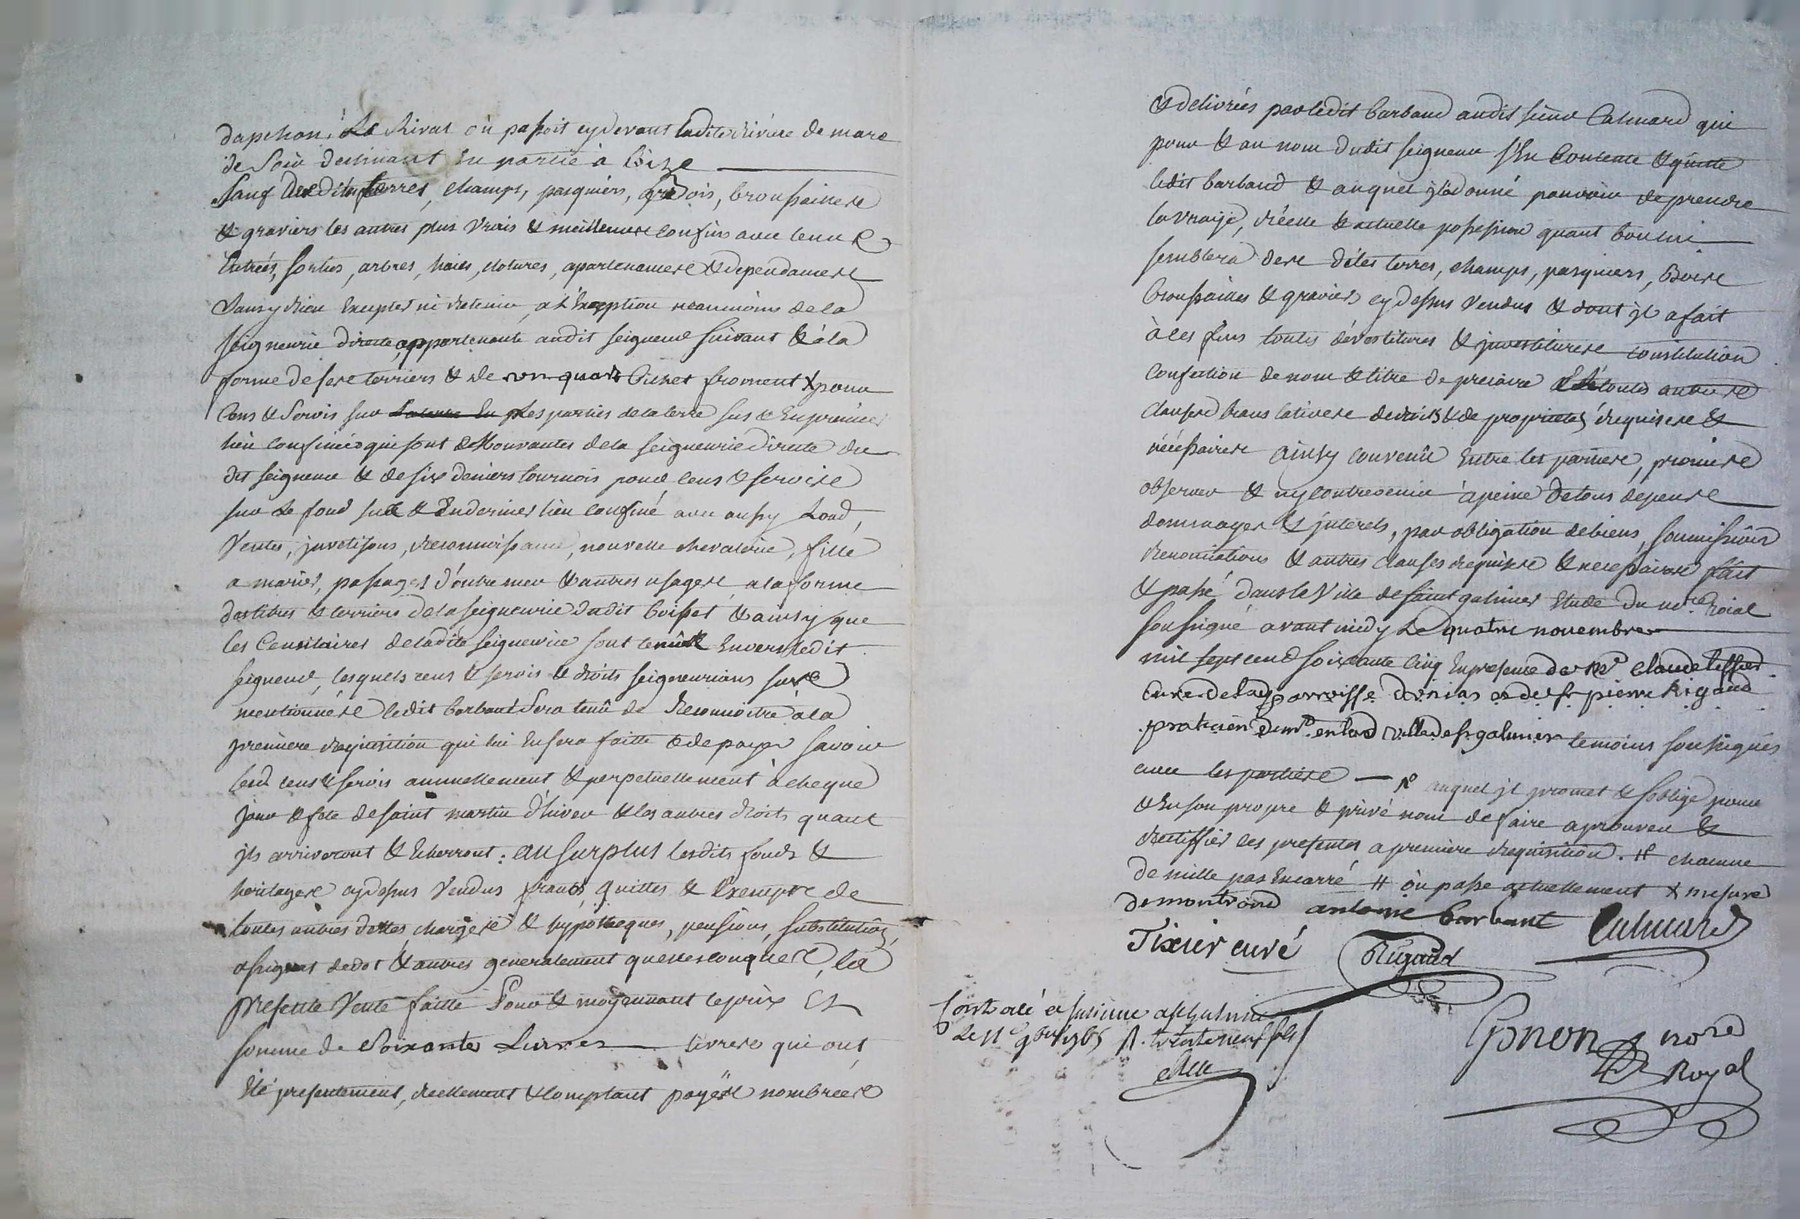 dapchon, Le Rivat où passoit cydevant ladite Rivière de mare
de Soir declinant En partie à bize
Sauf Desdits terres, champs, pasquiers, bois, broussailles
& graviers les autres plus vrais & meilleures confins avec leurs
Entrées, sorties, arbres, haies, clotures, apartenances & dependances
Sans y Rien Excepter ni Retenir, a l'Exception neanmoins de la
seigneurie directe appartenante audit seigneur suivant & à la
forme de ses terriers & de un quart Bichet froment pour
Cens & Servis sur les parties de la terre sus & En premier
lieu confinées qui sont Mouvantes de la seigneurie directe du
dit seigneur & de six deniers tournois pour cens & servis
sur Le fond sus & En dernier lieu confiné avec aussy Loud,
Ventes, investisons, Reconnoissance, nouvelle chevalerie, fille
a marier, passages d'outre mer & autres usages, a la forme
des titres & terriers de la seigneurie dudit boisset & ainsy que
les Censitaires de ladite seigneurie sont tenus Envers ledit
seigneur, lesquels cens & servis & droits seigneuriaux sus
mentionnés ledit barbant sera tenû de Reconnoitre à la
première Requisition qui lui En sera faitte & de payer savoir
lesd cens & servis annuellement & perpetuellement à cheque
jour & fête de saint martin d'hiver & les autres droits quant
ils arriveront & Echerront: au surplus lesdits fonds &
heritages cydessus Vendus francs quittes & Exempts de
toutes autres dettes, charges & hypotheques, pensions, substitution,
assignat de dot & autres generalement quelsconques, la
presente Vente faitte Pour & moyennant le prix Et
somme de Soixante Livres livres qui ont
Eté presentement, reellement & comptant payés nombrées
& delivrées par ledit barbant audit sieur Calmard qui
pour & au nom dudit seigneur s'En Contente & quitte
ledit barbant & auquel il a donné pouvoir de prendre
la vraye, réelle & actuelle possession quant bon lui
semblera desdites terres, champs, pasquiers, Bois
broussailles & graviers cydessus Vendus & dont il a fait
à ces fins toutes dévestitures & investitures constitution
confection de nom & titre de precaire & toutes autres
clauses translatives de droits & de proprietes requises &
nécéssaires ainsy convenû Entre les parties, promis
observer & n'y contrevenir à peine de tous depens
dommages & interets, par obligation de biens, soumissions
Renonciations & autres clauses requises & necessaires fait
& passé dans la Ville de saint galmier Etude du no.re Roial
soussigné avant midy Le quatre novembre
mil sept cent soixante cinq En presence de m.e Claude tissier
curé de la parroisse de et de s.r pierre Rigaud
praticien dem.t en lad ville de st galmier temoins soussignés
avec les parties — auquel il promet & s'oblige pour
& En son propre & privé nom de faire aprouver &
Rectiffier ces presentes a première Requisition. # chacune
de mille pas Encarré # où passe actuellement x mesure
de montrond antoine barbant Calmard
Tixier curé Rigaud
Controlé et insinué a st Galmier
Le 11e 9bre 1765 R.
pnon nore
Royal